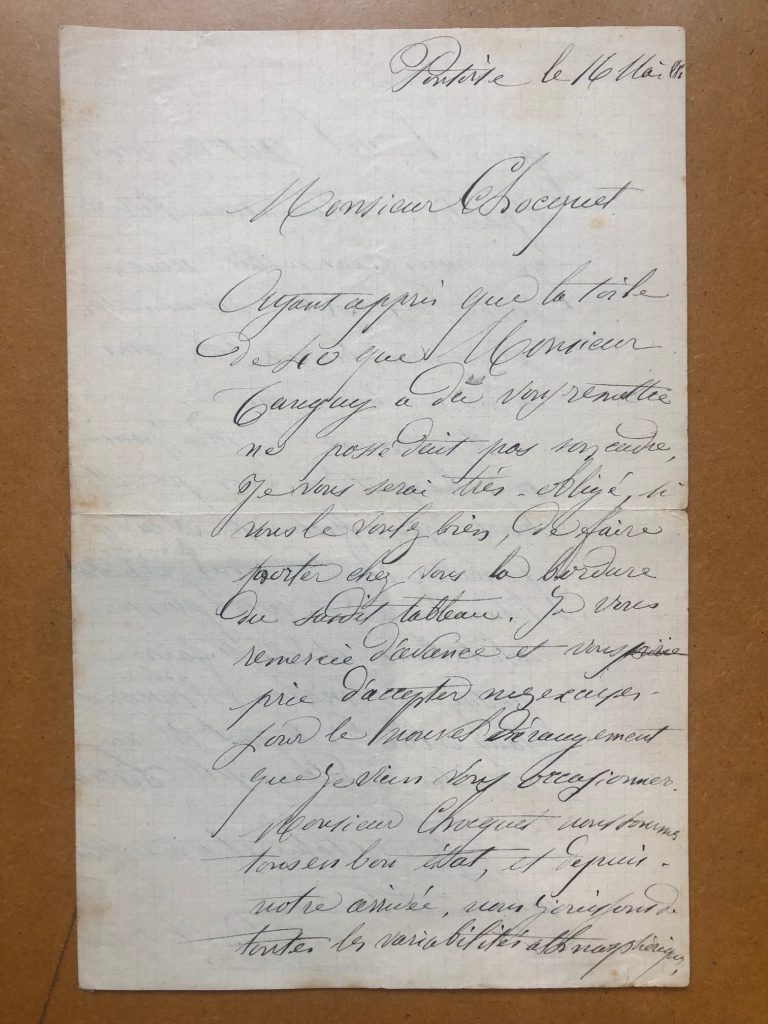 Pontoise le 16 Mai
Monsieur Chocquet
Ayant appris que la toile
de 40 que Monsieur
Tanguy a dû vous remettre
ne possédait pas son cadre,
Je vous serai très-obligé, si
vous le voulez bien, de faire
porter chez vous la bordure
du susdit tableau. Je vous
remercie d'avance et vous prie
prie d'accepter mes excuses
pour le nouvel dérangement
que je viens vous occasionner.
Monsieur Chocquet nous sommes
tous en bon état, et depuis
notre arrivée, nous jouissons de
toutes les variabilités athmosphériques,